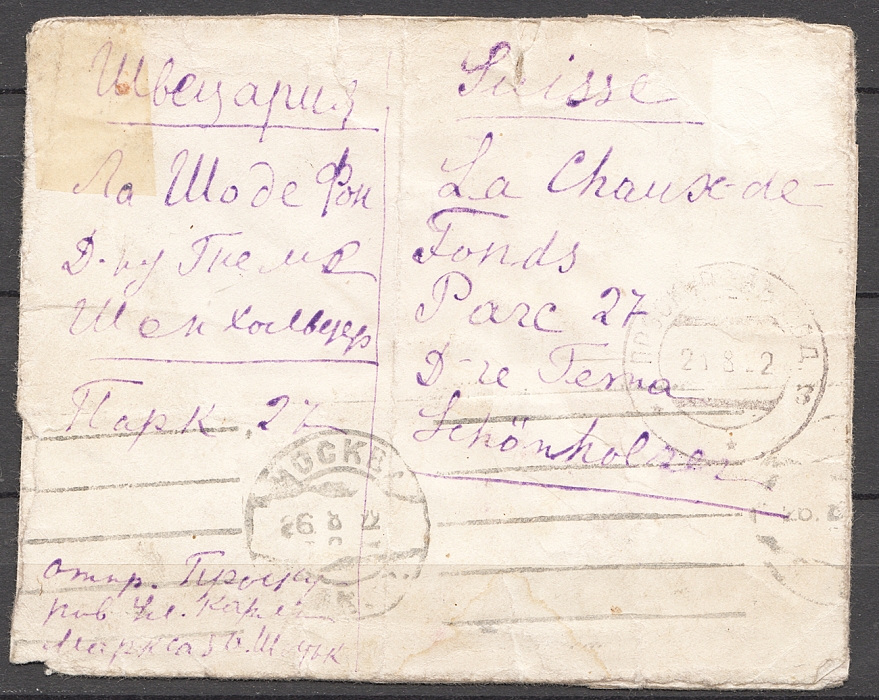 Швецария
Ла Шо де Фон
Д-ру
Шенхольцер
Парк 27
Suisse
La Chaux-de-
Fonds
Parc 27
D-re
Schönholzer
МОСКВА
26 8 22
21 8 22
отпр. Проску
ров Ул. Карла
Маркса